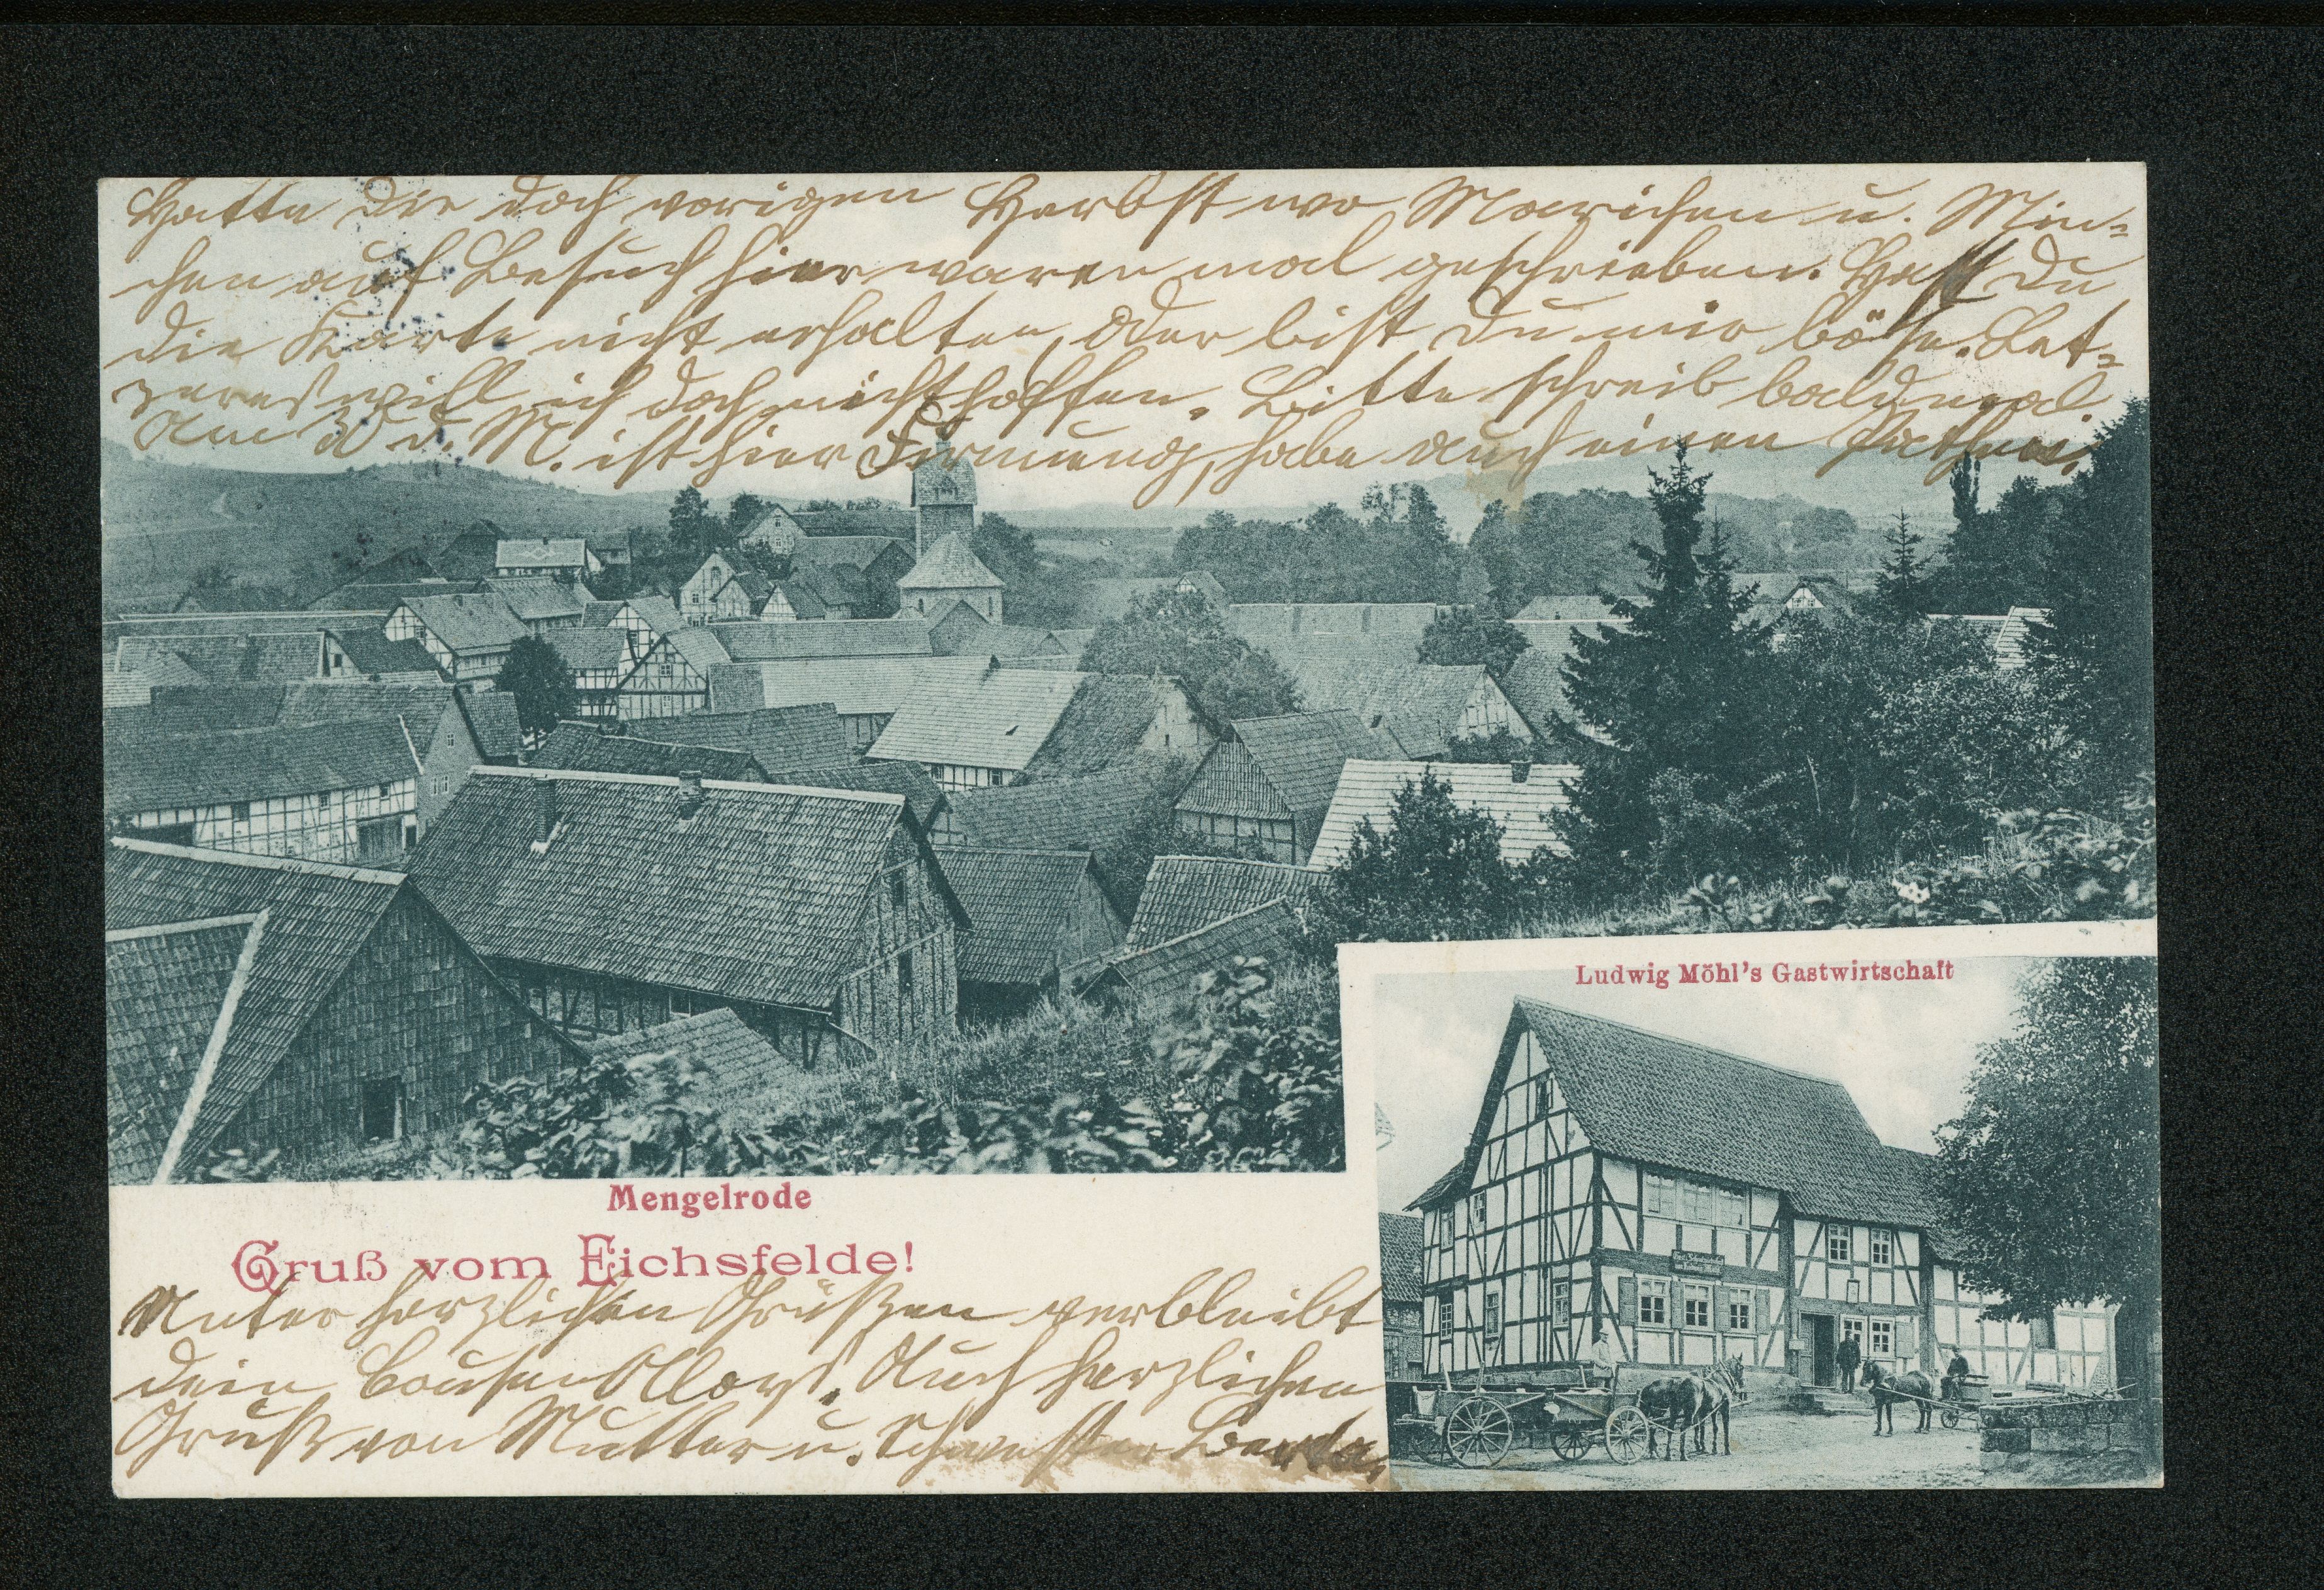 Hatte Dir doch vorigen Herbst wo Mariechen u. Min-
chen auf Besuch hier waren mal geschrieben. Hast Du
die Karte nicht erhalten, oder bist Du mir böse. Let-
zeres will ich doch nicht hoffen. Bitte schreib bald mal.
Am 30 d. M. ist hier Firmung, habe auch einen
Ludwig Möhl's Gastwirtschaft
Mengelrode
Gruß vom Eichsfelde!
Unter herzlichen Grüßen verbleibt
Dein Cousen Aloys. Auch herzlichen
Gruß von Mutter u. Schwester